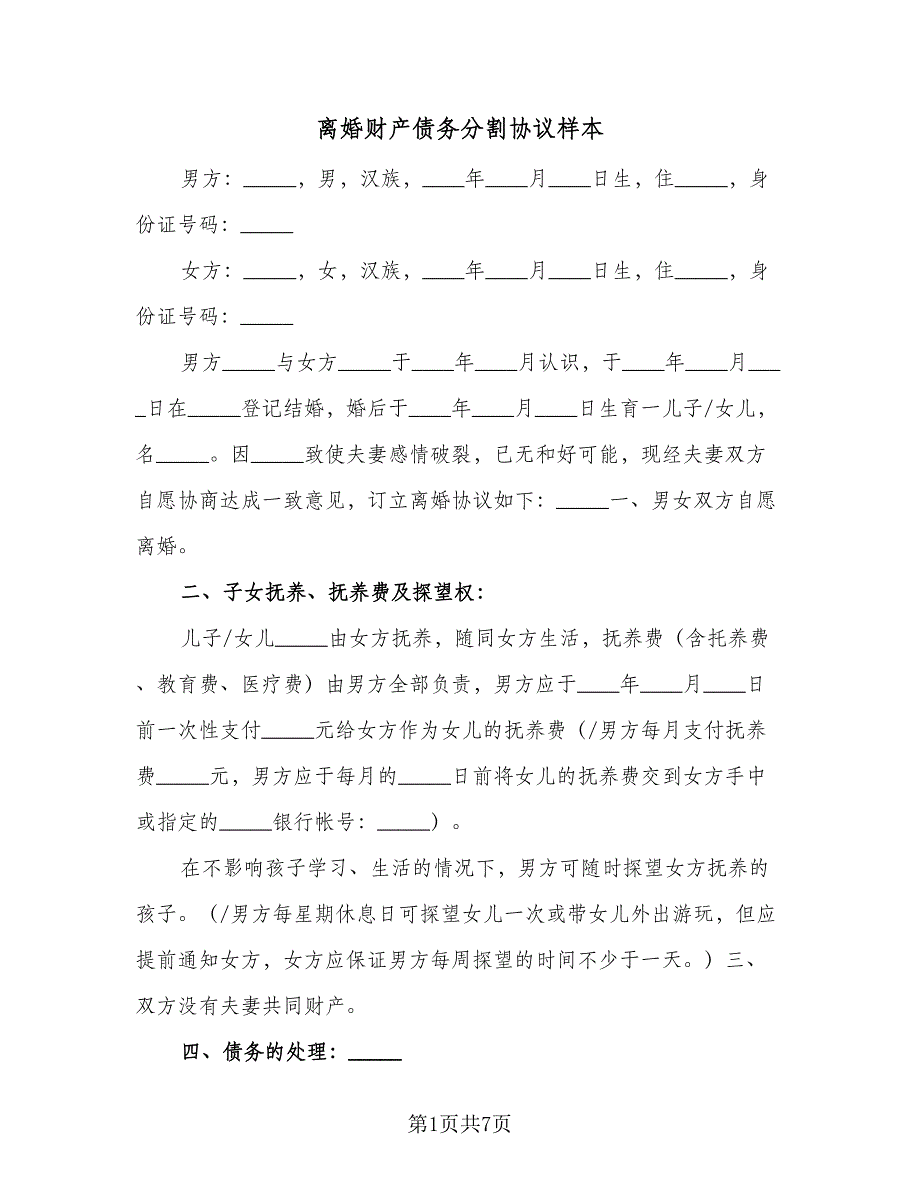 离婚财产债务分割协议样本
男方：_____，男，汉族，____年____月____日生，住_____，身
份证号码：_____
女方：_____，女，汉族，____年____月____日生，住_____，身
份证号码：_____
男方_____与女方_____于____年____月认识，于____年____月___
_日在_____登记结婚，婚后于____年____月____日生育一儿子/女儿，
名_____。因_____致使夫妻感情破裂，已无和好可能，现经夫妻双方
自愿协商达成一致意见，订立离婚协议如下：_____一、男女双方自愿
离婚。
二、子女抚养、抚养费及探望权：
儿子/女儿_____由女方抚养，随同女方生活，抚养费（含托养费
、教育费、医疗费）由男方全部负责，男方应于____年____月____日
前一次性支付_____元给女方作为女儿的抚养费（/男方每月支付抚养
费_____元，男方应于每月的_____日前将女儿的抚养费交到女方手中
或指定的_____银行帐号：_____）。
在不影响孩子学习、生活的情况下，男方可随时探望女方抚养的
孩子。（/男方每星期休息日可探望女儿一次或带女儿外出游玩，但应
提前通知女方，女方应保证男方每周探望的时间不少于一天。）三、
双方没有夫妻共同财产。
四、债务的处理：_____
第1页共7页